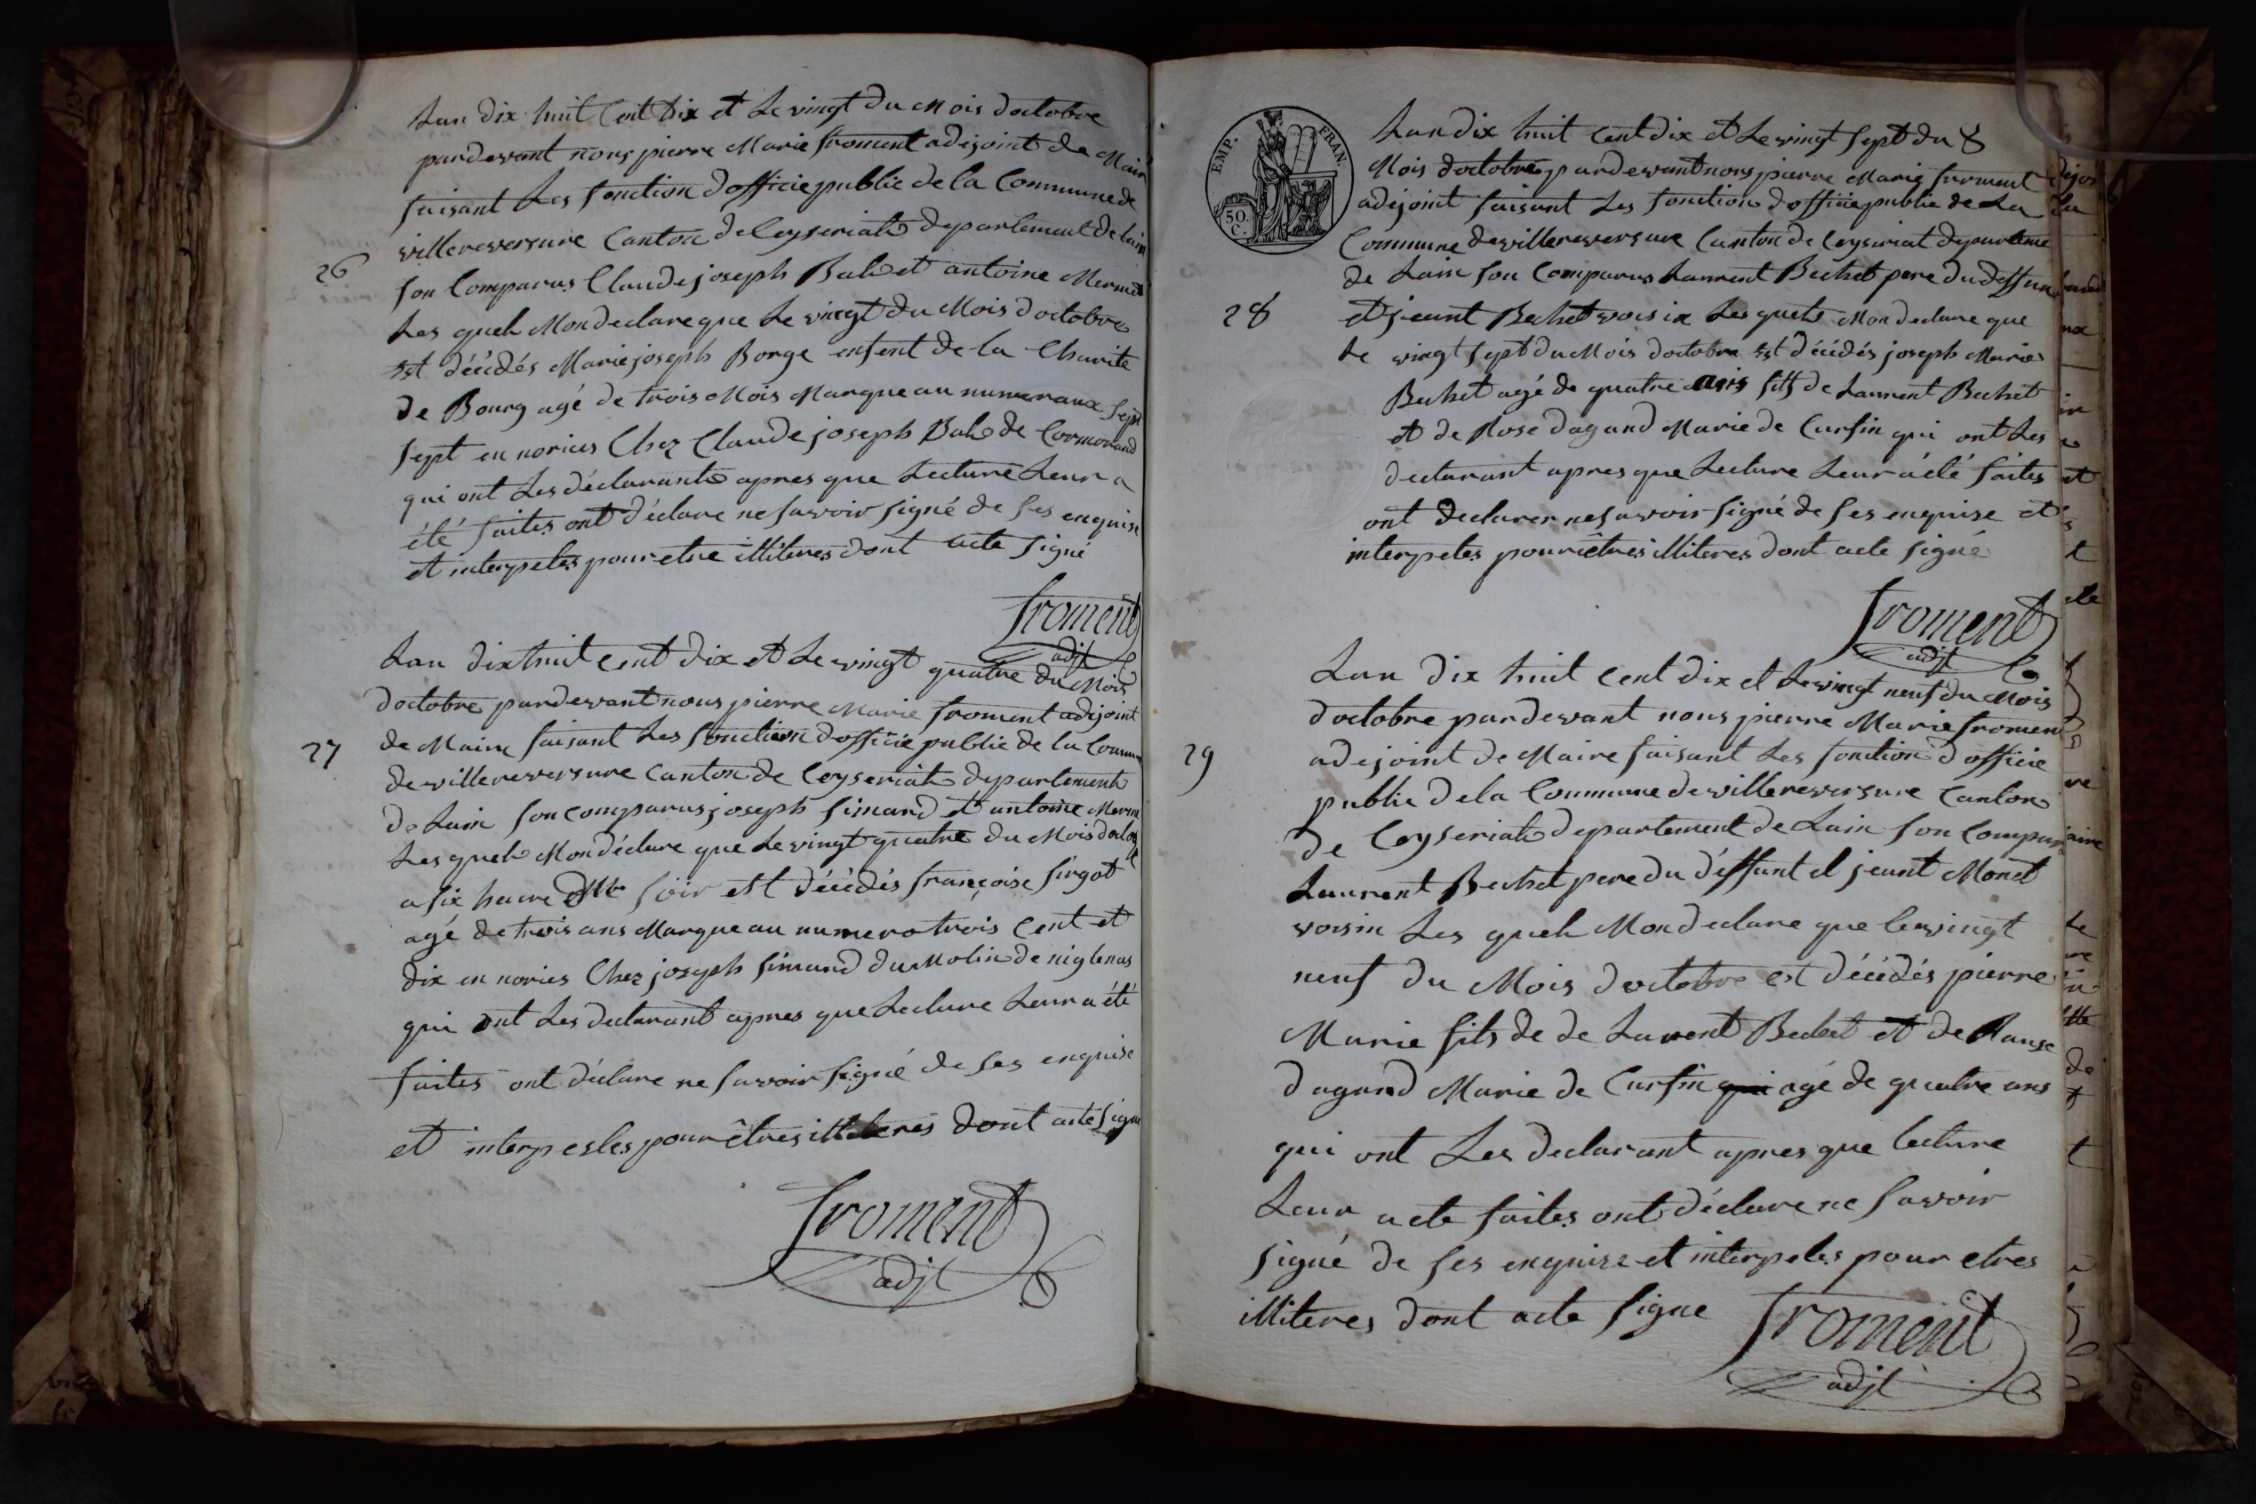 Lan dix huit Cent Dix et Le vingt Du Mois doctobre
pardevant nous pierre Marie froment adejoint de Mair
faisant Les fonction dofficie public de la Commune de
villereversure Canton de Ceyseriat departement de Lain
26
son Comparus Claude joseph Bal et antoine Mermet
Les quels Mon declare que Le vingt du Mois doctobre
Est décédés Marie joseph Borge enfent de la Charité
de Bourg agé de trois Mois Marque au numeraux sept
sept en norices Chez Claude joseph Bal de Cormorand
qui ont Les déclarants apres que Lecture Leur a
été faites ont déclare ne savoir signé de ses enquise
et interpeles pour etre illiteres dont acte signé
froment
adjt
Lan dix huit Cent dix et Le vingt quatre du Mois
doctobre pardevant nous pierre Marie froment adejoint
27
de Maire faisant Les fonction dofficie public de la Commun
de villereversure Canton de Ceyseriat departement
de Lain son comparus joseph simand et antoine Merm
Les quels Mon déclare que Le vingt quatre du Mois docto
a six heure soir est décédés françoise sirgot
agé de trois ans Marque au numero trois Cent et
dix en norices Chez joseph simand du Molin de niglenas
qui ont Les declarant apres que Lecture Leur a été
faites ont déclare ne savoir signé de ses enquise
et interpesles pour êtres illiteres dont acte signe
froment
adjt
EMP. FRAN.
50. C.
Lan dix huit Cent dix et Le vingt sept du
Mois doctobre pardevant nous pierre Marie froment
adejoint faisant Les fonction dofficie public de La
Commune de villereversure Canton de Ceyseriat departeme
de Lain son Comparus Laurent Bechet pere du deffun
28
et jeant Bechet voisin Les quels Mon declare que
Le vingt sept du Mois doctobre Est décédés joseph Marie
Bechet agé de quatre Mois fils de Laurent Bechet
et de Rose dagand Marie de Cursin qui ont Les
declarant apres que Lecture Leur a été faites
ont declarer ne savoir signé de ses enquise et
interpeles pour êtres illiteres dont acte signé
froment
adjt
Lan dix huit Cent dix et Le vingt neuf du Mois
doctobre pardevant nous pierre Marie froment
29
adejoint de Maire faisant Les fonction dofficie
public de la Commune de villereversure Canton
de Ceyseriat departement de Lain son Compar
Laurent Bechet pere du déffunt et jeant Monet
voisin Les quels Mon declare que le vingt
neuf du Mois doctobre est décédés pierre
Marie fils de de Laurent Bechet et de Rause
dagand Marie de Cursin qui agé de quatre ans
qui ont Les declarant apres que lecture
Leur a ete faites ont déclare ne savoir
signé de ses enquise et interpeles pour etres
illiteres dont acte signe
froment
adjt